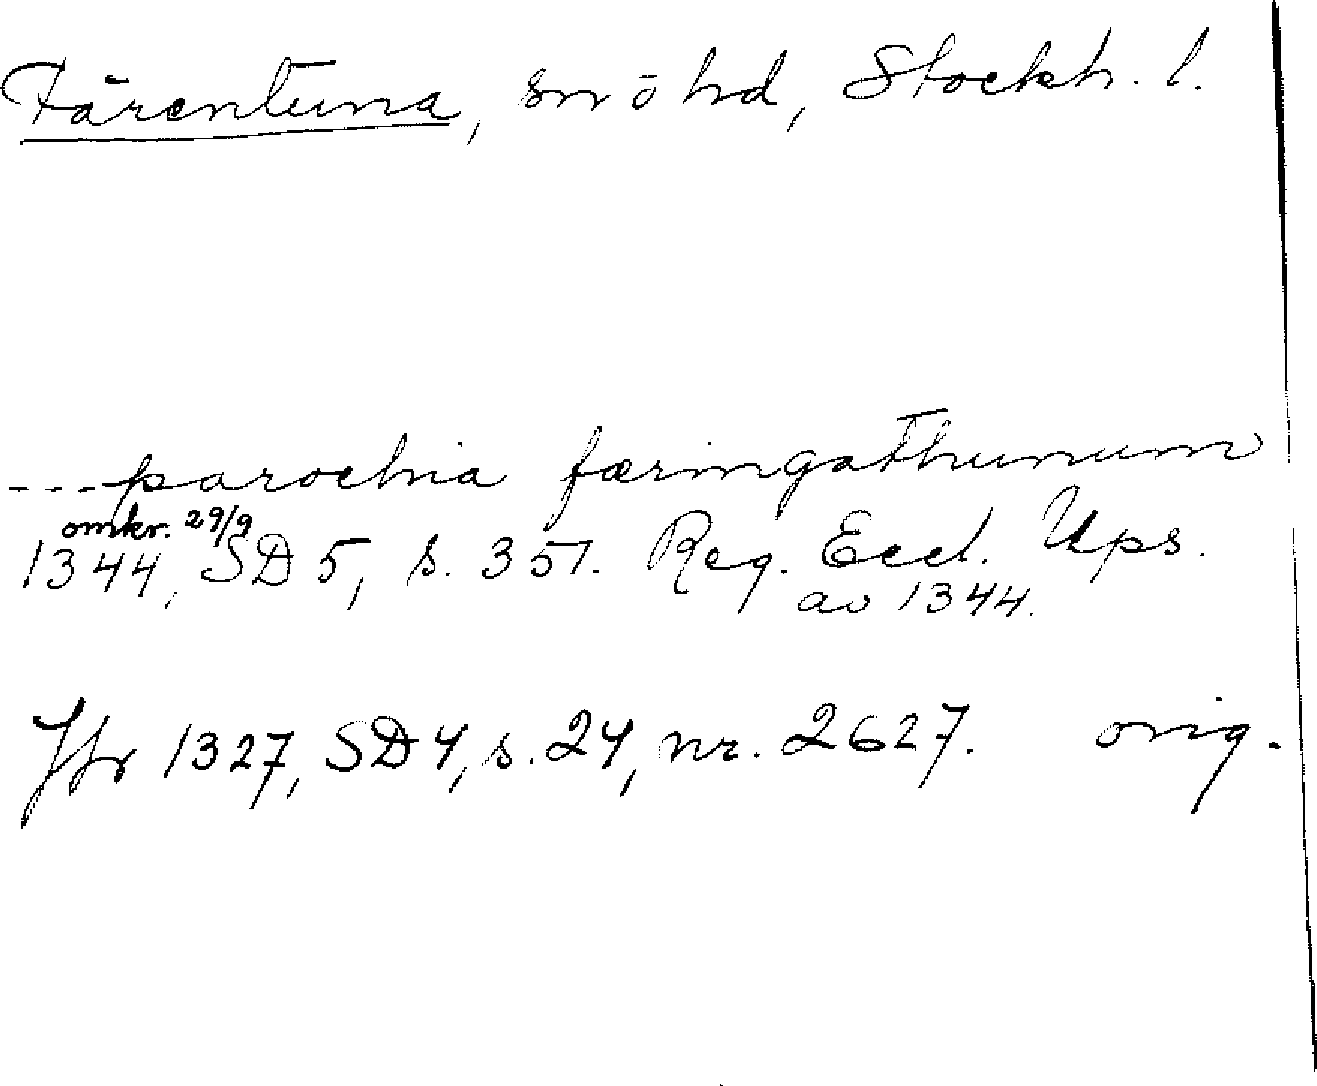 Färentuna, sn o hd, Stockh. l.
---parochia færingathunum
omkr. 29/9
1344, SD 5, s. 351. Reg. Eccl. Ups.
av 1344.
Jfr 1327, SD 4, s. 24, nr. 2627. orig.